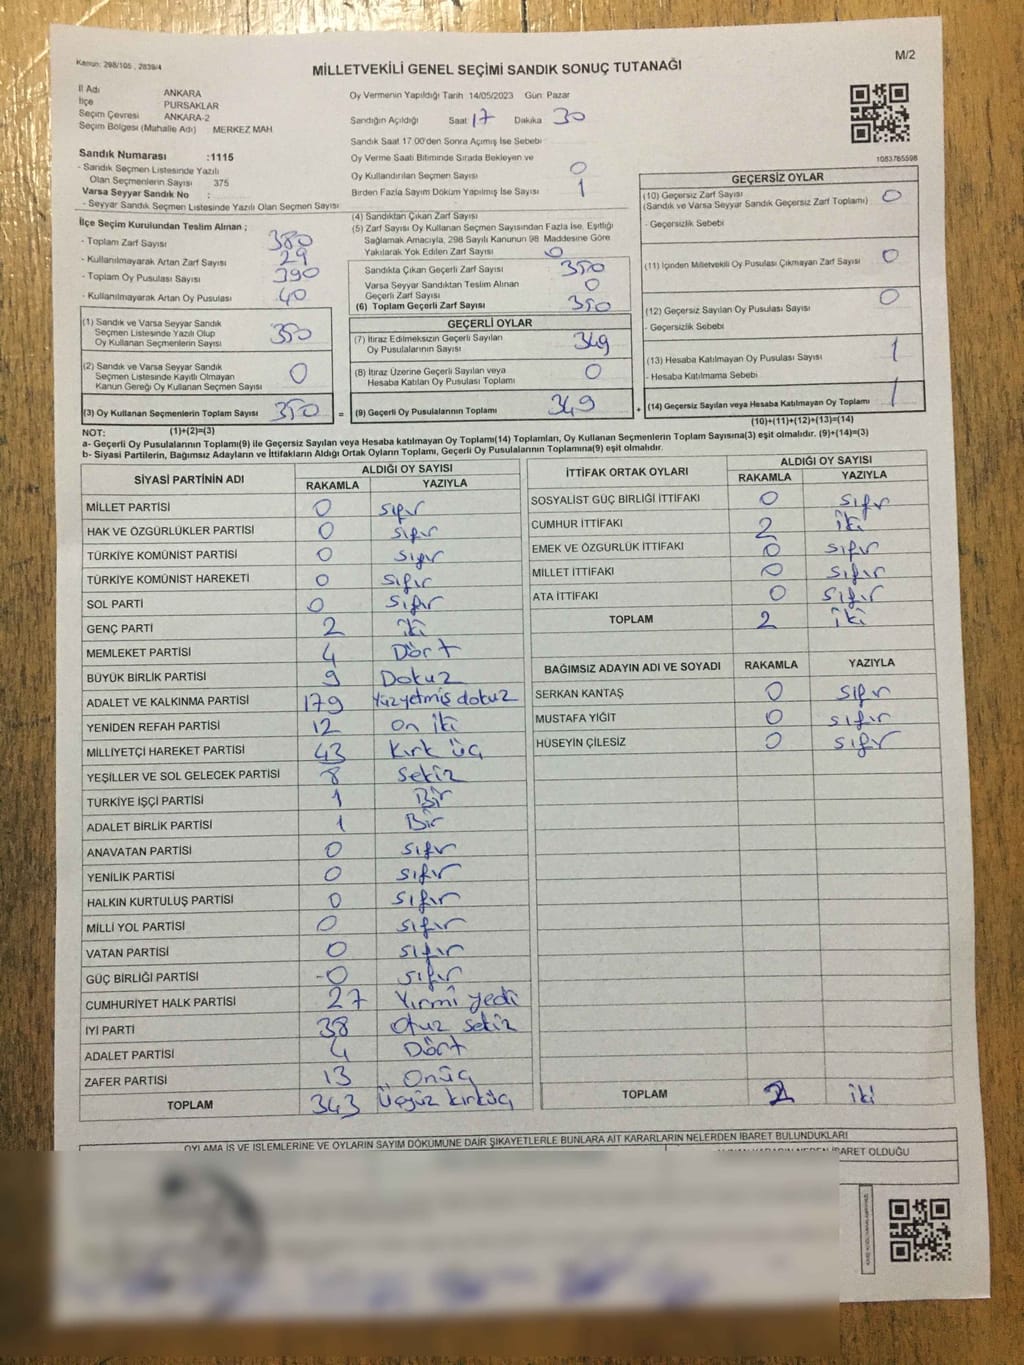 Kanun: 298/105 , 2839/4
M/2
MİLLETVEKİLİ GENEL SEÇİMİ SANDIK SONUÇ TUTANAĞI
İl Adı ANKARA
İlçe PURSAKLAR
Seçim Çevresi ANKARA-2
Seçim Bölgesi (Mahalle Adı) : MERKEZ MAH.
Sandık Numarası :1115
- Sandık Seçmen Listesinde Yazılı
Olan Seçmenlerin Sayısı 375
Varsa Seyyar Sandık No :
- Seyyar Sandık Seçmen Listesinde Yazılı Olan Seçmen Sayısı
Oy Vermenin Yapıldığı Tarih 14/05/2023 Gün: Pazar
Sandığın Açıldığı Saat 17 Dakika 30
Sandık Saat 17.00'den Sonra Açımış İse Sebebi
Oy Verme Saati Bitiminde Sırada Bekleyen ve
Oy Kullandırılan Seçmen Sayısı 0
Birden Fazla Sayım Döküm Yapılmış İse Sayısı 1
1053785598
İlçe Seçim Kurulundan Teslim Alınan ;
- Toplam Zarf Sayısı 380
- Kullanılmayarak Artan Zarf Sayısı 29
- Toplam Oy Pusulası Sayısı 390
- Kullanılmayarak Artan Oy Pusulası 40
(1) Sandık ve Varsa Seyyar Sandık
Seçmen Listesinde Yazılı Olup
Oy Kullanan Seçmenlerin Sayısı 350
(2) Sandık ve Varsa Seyyar Sandık
Seçmen Listesinde Kayıtlı Olmayan
Kanun Gereği Oy Kullanan Seçmen Sayısı 0
(3) Oy Kullanan Seçmenlerin Toplam Sayısı 350 =
(1)+(2)=(3)
(4) Sandıktan Çıkan Zarf Sayısı
(5) Zarf Sayısı Oy Kullanan Seçmen Sayısından Fazla İse, Eşitliği
Sağlamak Amacıyla, 298 Sayılı Kanunun 98. Maddesine Göre
Yakılarak Yok Edilen Zarf Sayısı 0
Sandıkta Çıkan Geçerli Zarf Sayısı 350
Varsa Seyyar Sandıktan Teslim Alınan
Geçerli Zarf Sayısı 0
(6) Toplam Geçerli Zarf Sayısı 350
GEÇERLİ OYLAR
(7) İtiraz Edilmeksizin Geçerli Sayılan
Oy Pusulalarının Sayısı 349
(8) İtiraz Üzerine Geçerli Sayılan veya
Hesaba Katılan Oy Pusulası Toplamı 0
(9) Geçerli Oy Pusulalarının Toplamı 349 +
GEÇERSİZ OYLAR
(10) Geçersiz Zarf Sayısı
(Sandık ve Varsa Seyyar Sandık Geçersiz Zarf Toplamı) 0
- Geçersizlik Sebebi
(11) İçinden Milletvekili Oy Pusulası Çıkmayan Zarf Sayısı 0
(12) Geçersiz Sayılan Oy Pusulası Sayısı 0
- Geçersizlik Sebebi
(13) Hesaba Katılmayan Oy Pusulası Sayısı 1
- Hesaba Katılmama Sebebi
(14) Geçersiz Sayılan veya Hesaba Katılmayan Oy Toplamı 1
(10)+(11)+(12)+(13)=(14)
NOT:
a- Geçerli Oy Pusulalarının Toplamı(9) ile Geçersiz Sayılan veya Hesaba katılmayan Oy Toplamı(14) Toplamları, Oy Kullanan Seçmenlerin Toplam Sayısına(3) eşit olmalıdır. (9)+(14)=(3)
b- Siyasi Partilerin, Bağımsız Adayların ve İttifakların Aldığı Ortak Oyların Toplamı, Geçerli Oy Pusulalarının Toplamına(9) eşit olmalıdır.
SİYASİ PARTİNİN ADI ALDIĞI OY SAYISI
RAKAMLA YAZIYLA
MİLLET PARTİSİ 0 sıfır
HAK VE ÖZGÜRLÜKLER PARTİSİ 0 sıfır
TÜRKİYE KOMÜNİST PARTİSİ 0 sıfır
TÜRKİYE KOMÜNİST HAREKETİ 0 sıfır
SOL PARTİ 0 sıfır
GENÇ PARTİ 2 iki
MEMLEKET PARTİSİ 4 Dört
BÜYÜK BİRLİK PARTİSİ 9 Dokuz
ADALET VE KALKINMA PARTİSİ 179 Yüzyetmiş dokuz
YENİDEN REFAH PARTİSİ 12 on iki
MİLLİYETÇİ HAREKET PARTİSİ 43 Kırk üç
YEŞİLLER VE SOL GELECEK PARTİSİ 8 Sekiz
TÜRKİYE İŞÇİ PARTİSİ 1 Bir
ADALET BİRLİK PARTİSİ 1 Bir
ANAVATAN PARTİSİ 0 sıfır
YENİLİK PARTİSİ 0 sıfır
HALKIN KURTULUŞ PARTİSİ 0 sıfır
MİLLİ YOL PARTİSİ 0 sıfır
VATAN PARTİSİ 0 sıfır
GÜÇ BİRLİĞİ PARTİSİ -0 sıfır
CUMHURİYET HALK PARTİSİ 27 Yirmi yedi
İYİ PARTİ 38 Otuz sekiz
ADALET PARTİSİ 4 Dört
ZAFER PARTİSİ 13 Onüç
TOPLAM 343 Üçyüz kırküç
İTTİFAK ORTAK OYLARI ALDIĞI OY SAYISI
RAKAMLA YAZIYLA
SOSYALİST GÜÇ BİRLİĞİ İTTİFAKI 0 sıfır
CUMHUR İTTİFAKI 2 iki
EMEK VE ÖZGÜRLÜK İTTİFAKI 0 sıfır
MİLLET İTTİFAKI 0 sıfır
ATA İTTİFAKI 0 sıfır
TOPLAM 2 iki
BAĞIMSIZ ADAYIN ADI VE SOYADI RAKAMLA YAZIYLA
SERKAN KANTAŞ 0 sıfır
MUSTAFA YİĞİT 0 sıfır
HÜSEYİN ÇİLESİZ 0 sıfır
TOPLAM 2 iki
OYLAMA İŞ VE İŞLEMLERİNE VE OYLARIN SAYIM DÖKÜMÜNE DAİR ŞİKAYETLERLE BUNLARA AİT KARARLARIN NELERDEN İBARET BULUNDUKLARI
İBARET OLDUĞU